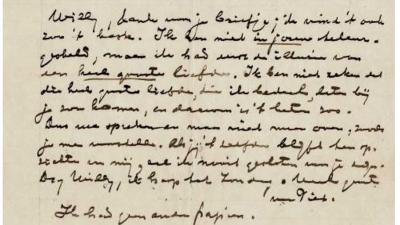 Willy, dank voor je briefje; ik vind 't ook
zoo 't beste. Ik ben niet in jou teleur-
gesteld, maar ik had even de illusie van
een heel groote liefde. Ik ben niet zeker dat
die heel groote liefde, die ik bedoel, later bij
je zou komen, en daarom is 't beter zoo.
Dus we spreken er maar niet meer over, zooals
je me voorstelde. Als jij 't zelfde blijft ten op-
zichte van mij, zal ik nooit
Dag Willy, ik hoop tot Zondag. Veel groeten
van
Ik had geen ander papier.